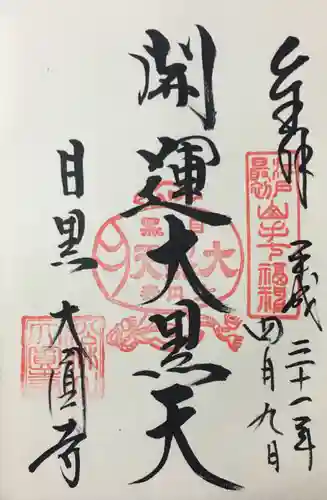 奉拝
平成三十一年
四月九日
江戸最初山手七福神
開運大黒天
目黒 大圓寺